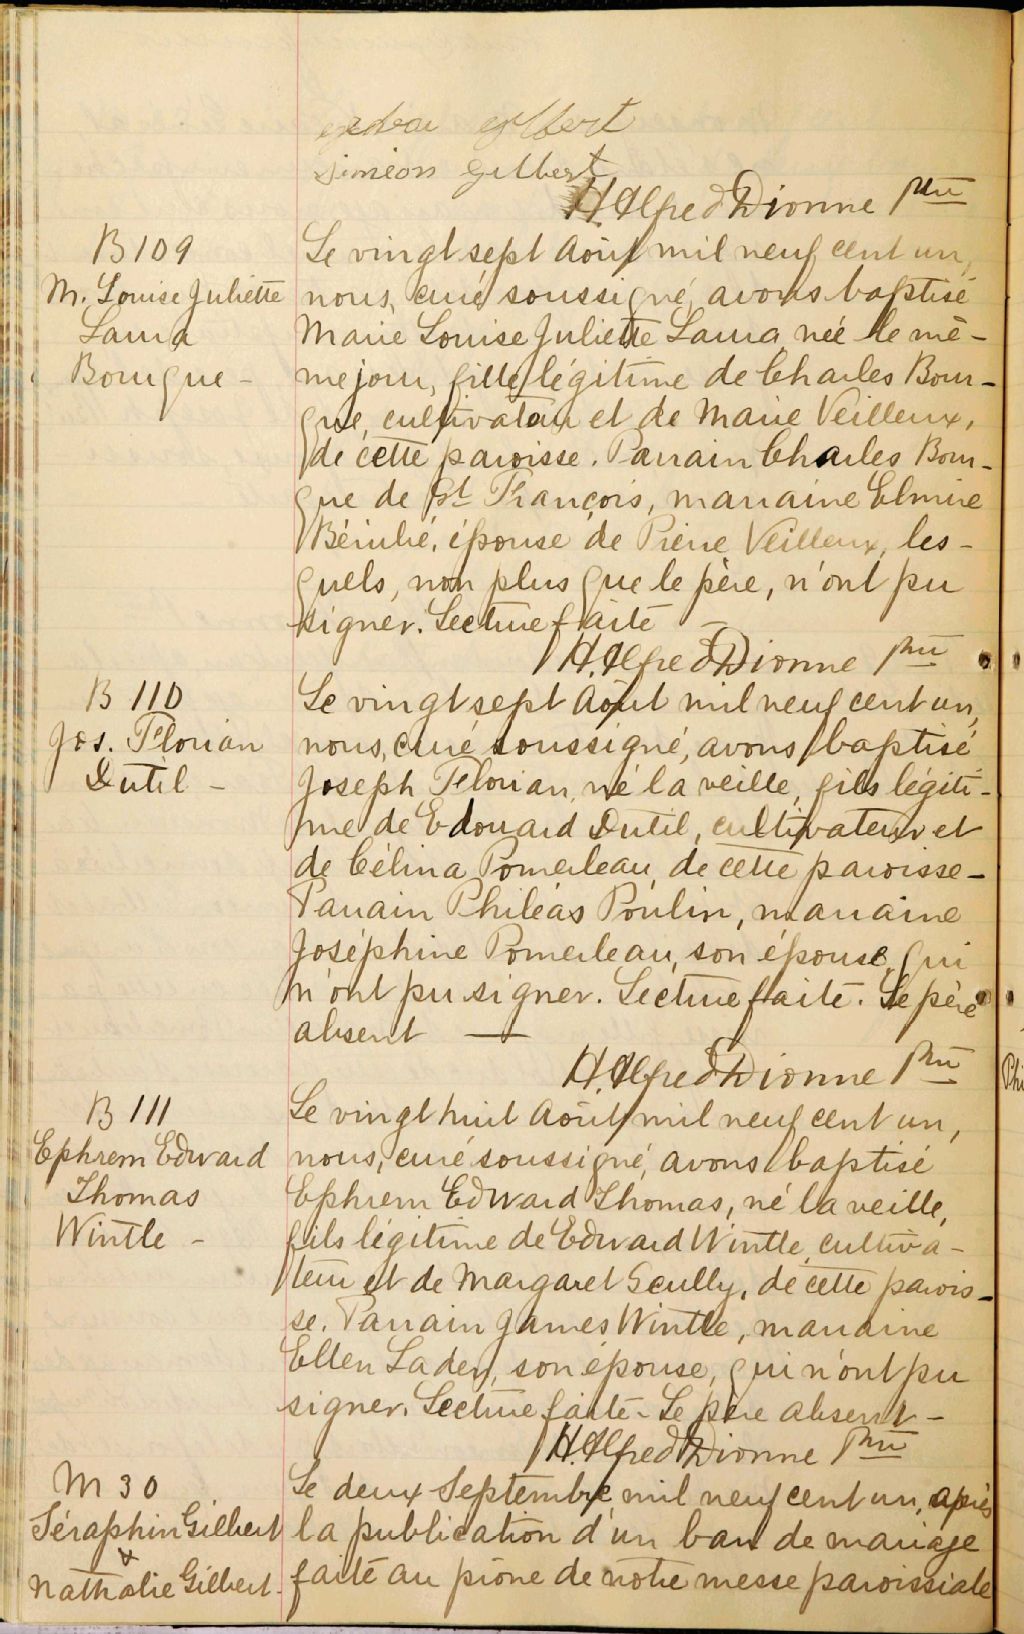 gilbert
Siméon gilbert
H. Alfred Dionne Ptre
B 109
M. Louise Juliette
Laura
Bourque -
Le vingt sept Août mil neuf cent un,
nous, curé soussigné, avons baptisé
Marie Louise Juliette Laura née le mê-
me jour, fille légitime de Charles Bour-
que, cultivateur et de Marie Veilleux,
de cette paroisse. Parrain Charles Bour-
que de St François, marraine Elmire
Bérubé, épouse de Pierre Veilleux, les-
quels, non plus que le père, n'ont pu
signer. Lecture faite -
H. Alfred Dionne Ptre
B 110
Jos. Florian
Dutil -
Le vingt sept Août mil neuf cent un,
nous, curé soussigné, avons baptisé
Joseph Florian, né la veille, fils légiti-
me de Edouard Dutil, cultivateur et
de Célina Pomerleau, de cette paroisse -
Parrain Philéas Poulin, marraine
Joséphine Pomerleau, son épouse, qui
n'ont pu signer. Lecture faite. Le père
absent —
H. Alfred Dionne Ptre
B 111
Ephrem Edward
Thomas
Wintle -
Le vingt huit Août mil neuf cent un,
nous, curé soussigné, avons baptisé
Ephrem Edward Thomas, né la veille,
fils légitime de Edward Wintle, cultiva-
teur et de Margaret Scully, de cette parois-
se. Parrain James Wintle, marraine
Ellen Laden, son épouse, qui n'ont pu
signer. Lecture faite - Le père absent -
H. Alfred Dionne Ptre
M 30
Séraphin Gilbert
&
Nathalie Gilbert
Le deux Septembre mil neuf cent un, après
la publication d'un ban de mariage
faite au prône de notre messe paroissiale
Phi